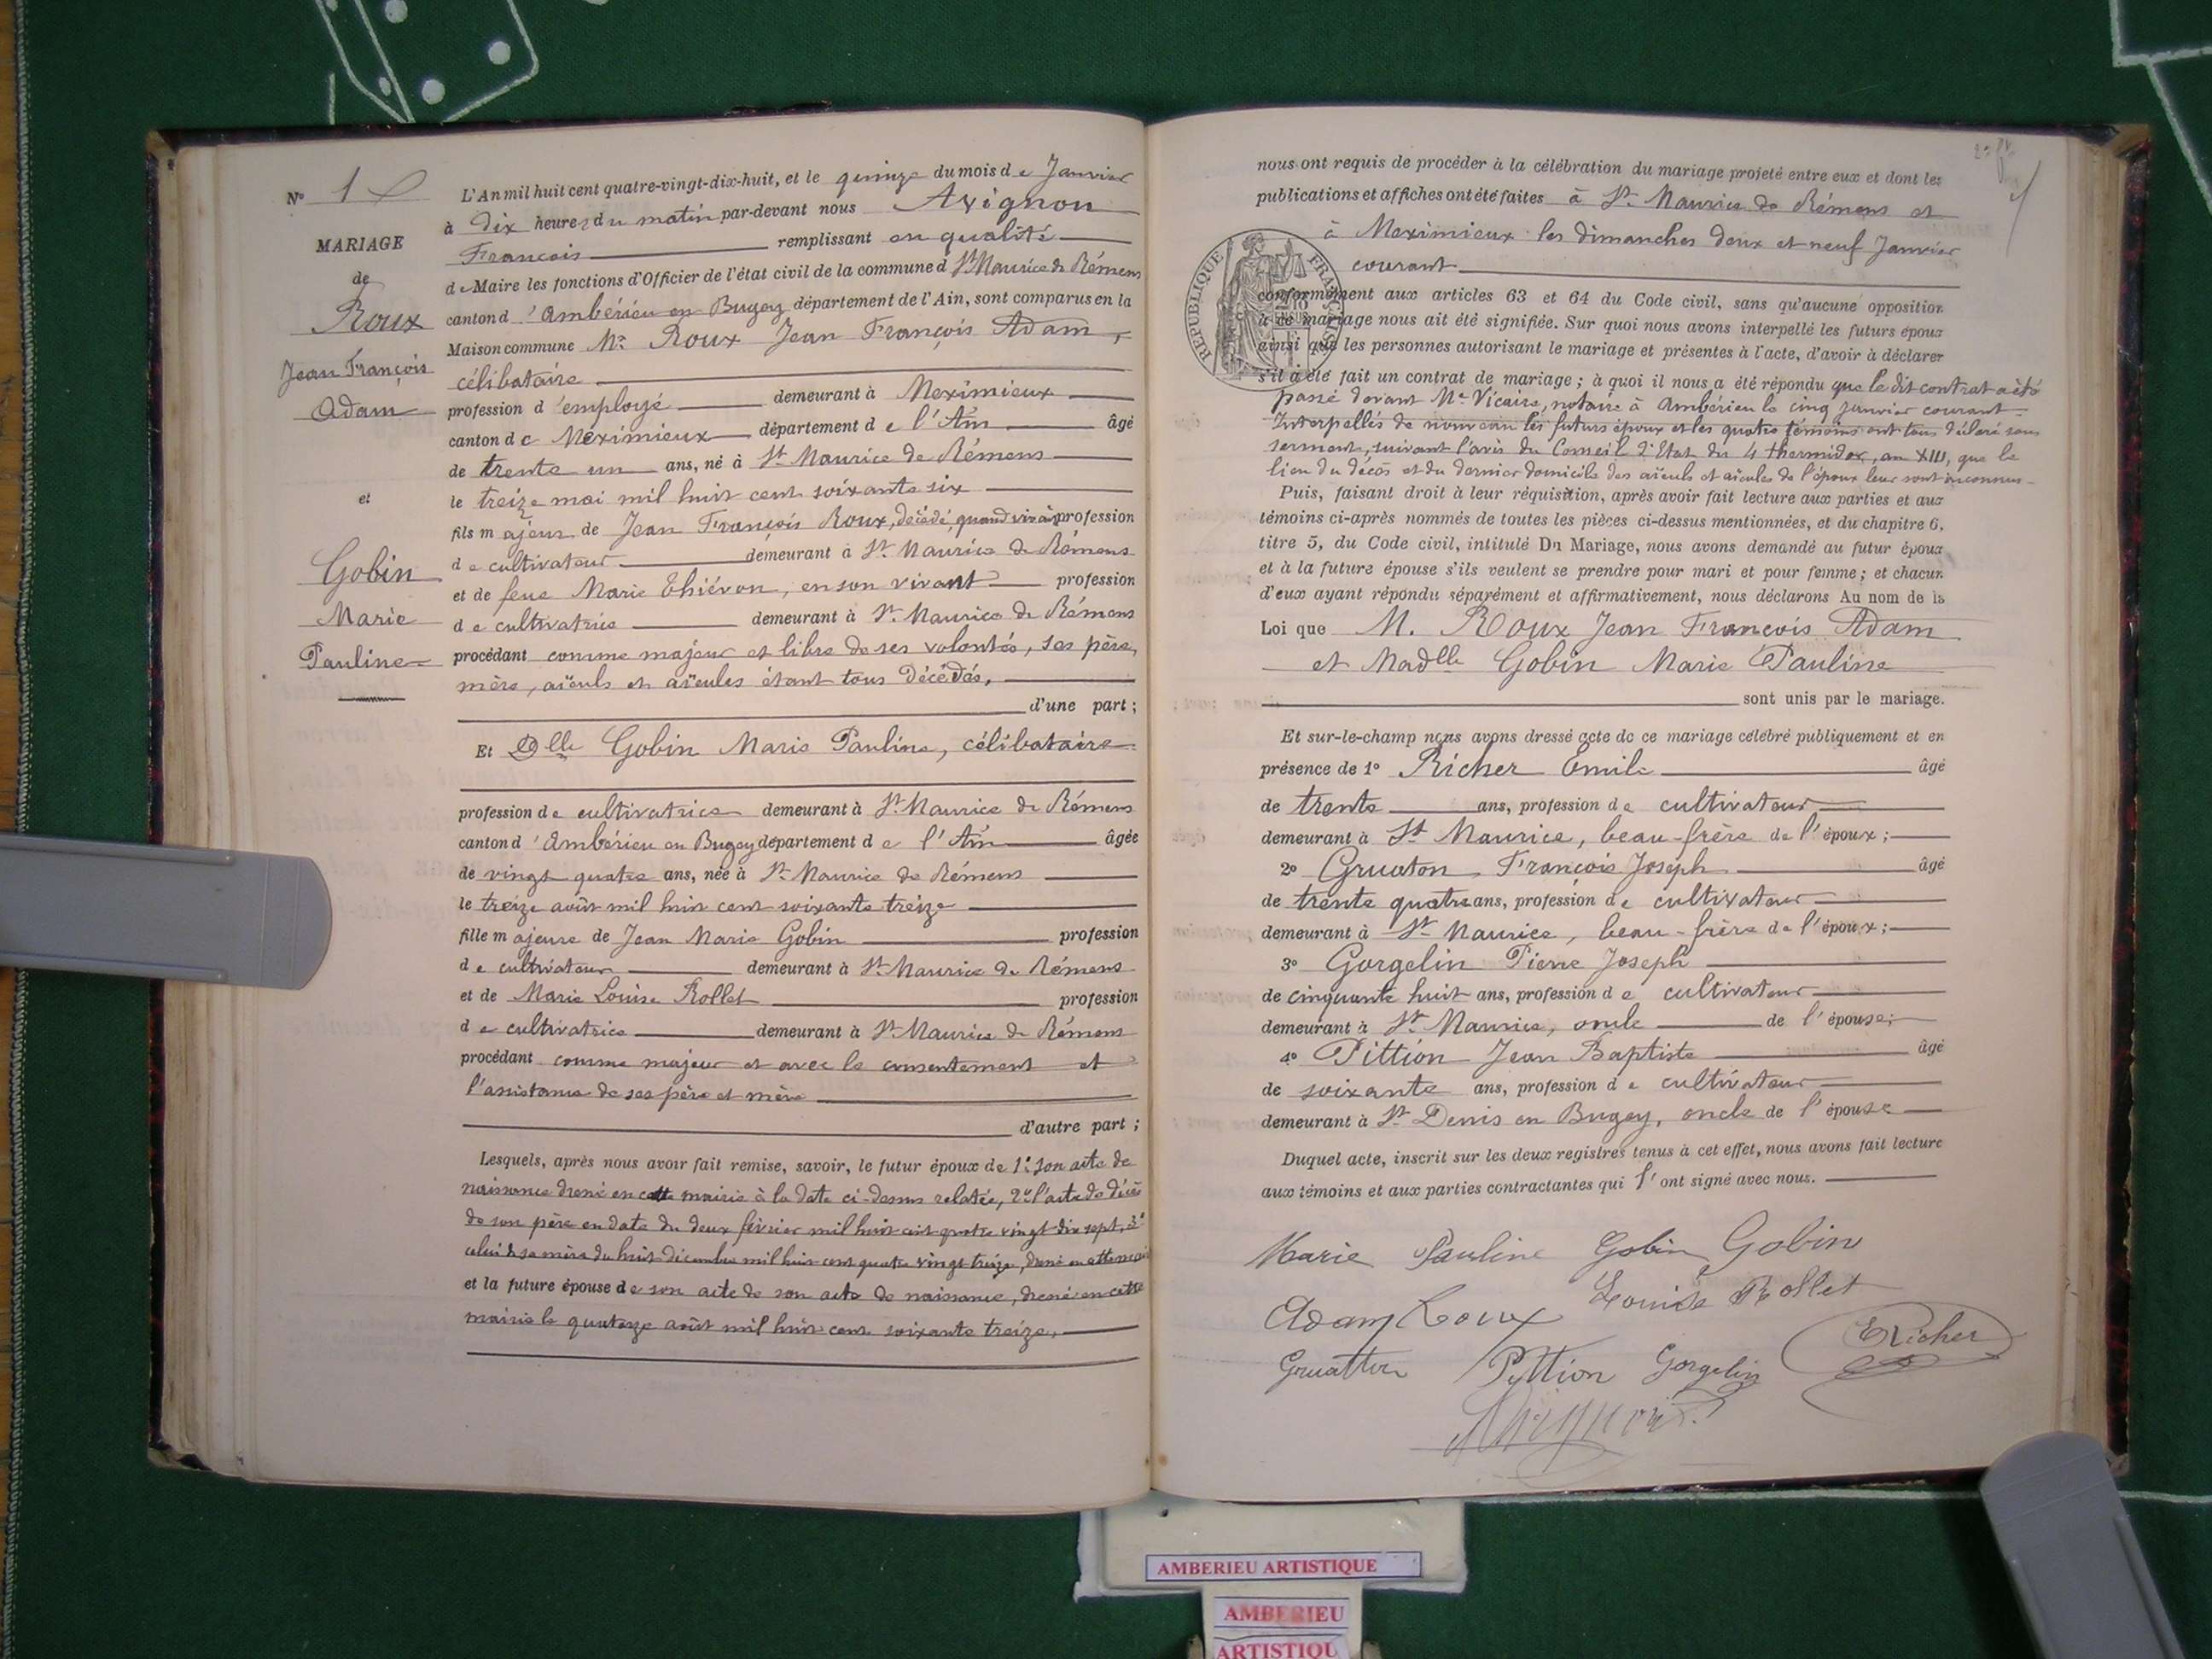 N° 1
MARIAGE
de
Roux
Jean François
Adam
et
Gobin
Marie
Pauline
L'An mil huit cent quatre-vingt-dix-huit, et le quinze du mois de Janvier
à Dix heures du matin par-devant nous Avignon
Francois remplissant en qualité
de Maire les fonctions d'Officier de l'état civil de la commune d St Maurice de Rémens
canton d'Ambérieu en Bugey département de l'Ain, sont comparus en la
Maison commune Mr Roux Jean François Adam,
célibataire
profession d'employé demeurant à Meximieux
canton de Meximieux département de l'Ain âgé
de trente un ans, né à St Maurice de Rémens
le treize mai mil huit cent soixante six
fils majeur de Jean François Roux, décédé, quand vivait profession
de cultivateur demeurant à St Maurice de Rémens
et de feue Marie Thiévon, en son vivant profession
de cultivatrice demeurant à St Maurice de Rémens
procédant comme majeur et libre de ses volontés, ses père,
mère, aïeuls et aïeules étant tous décédés,
d'une part ;
Et Dlle Gobin Marie Pauline, célibataire
profession de cultivatrice demeurant à St Maurice de Rémens
canton d'Ambérieu en Bugey département de l'Ain âgée
de vingt quatre ans, née à St Maurice de Rémens
le treize août mil huit cent soixante treize
fille majeure de Jean Marie Gobin profession
de cultivateur demeurant à St Maurice de Rémens
et de Marie Louise Rollet profession
de cultivatrice demeurant à St Maurice de Rémens
procédant comme majeur et avec le consentement et
l'assistance de ses père et mère
d'autre part ;
Lesquels, après nous avoir fait remise, savoir, le futur époux de 1° son acte de
naissance dressé en cette mairie à la date ci-dessus relatée, 2° l'acte de décès
de son père en date du deux février mil huit cent quatre vingt dix sept, 3°
celui de sa mère du huit décembre mil huit cent quatre vingt treize, dressé en cette mairie
et la future épouse de son acte de son acte de naissance, dressé en cette
mairie le quatorze août mil huit cent soixante treize,
nous ont requis de procéder à la célébration du mariage projeté entre eux et dont les
publications et affiches ont été faites à St Maurice de Rémens et
à Meximieux les dimanches deux et neuf Janvier
courant
REPUBLIQUE FRANÇAISE
conformément aux articles 63 et 64 du Code civil, sans qu'aucune opposition
à ce mariage nous ait été signifiée. Sur quoi nous avons interpellé les futurs époux
ainsi que les personnes autorisant le mariage et présentes à l'acte, d'avoir à déclarer
s'il a été fait un contrat de mariage ; à quoi il nous a été répondu que le dit contrat a été
passé devant Me Vicaire, notaire à Ambérieu le cinq janvier courant
Interpellés de nouveau les futurs époux et les quatre témoins ont tous déclaré sous
serment, suivant l'avis du Conseil d'Etat du 4 thermidor, an XIII, que le
lieu du décès et du dernier domicile des aïeuls et aïeules de l'époux leur sont inconnus
Puis, faisant droit à leur réquisition, après avoir fait lecture aux parties et aux
témoins ci-après nommés de toutes les pièces ci-dessus mentionnées, et du chapitre 6,
titre 5, du Code civil, intitulé Du Mariage, nous avons demandé au futur époux
et à la future épouse s'ils veulent se prendre pour mari et pour femme ; et chacun
d'eux ayant répondu séparément et affirmativement, nous déclarons Au nom de la
Loi que M. Roux Jean François Adam
et Madlle Gobin Marie Pauline
sont unis par le mariage.
Et sur-le-champ nous avons dressé acte de ce mariage célébré publiquement et en
présence de 1° Richer Emile âgé
de trente ans, profession de cultivateur
demeurant à St Maurice, beau-frère de l'époux ;
2° Gruaton François Joseph âgé
de trente quatre ans, profession de cultivateur
demeurant à St Maurice, beau-frère de l'époux ;
3° Gorgelin Pierre Joseph
de cinquante huit ans, profession de cultivateur
demeurant à St Maurice, oncle de l'épouse ;
4° Pittion Jean Baptiste âgé
de soixante ans, profession de cultivateur
demeurant à St Denis en Bugey, oncle de l'épouse
Duquel acte, inscrit sur les deux registres tenus à cet effet, nous avons fait lecture
aux témoins et aux parties contractantes qui l'ont signé avec nous.
Marie Pauline Gobin Gobin
Adam Roux Louise Rollet
ERicher
Gruatton Pittion Gorgelin
Avignon
AMBERIEU ARTISTIQUE
AMBERIEU
ARTISTIQU